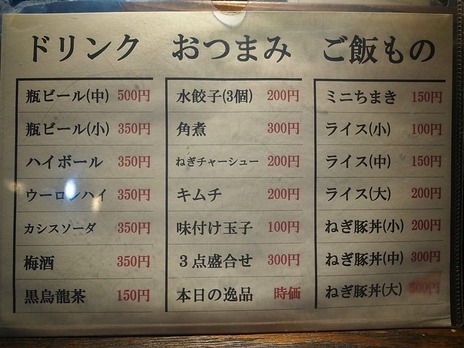 ドリンク
瓶ビール(中) 500円
瓶ビール(小) 350円
ハイボール 350円
ウーロンハイ 350円
カシスソーダ 350円
梅酒 350円
黒烏龍茶 150円
おつまみ
水餃子(3個) 200円
角煮 300円
ねぎチャーシュー 200円
キムチ 200円
味付け玉子 100円
3点盛合せ 300円
本日の逸品 時価
ご飯もの
ミニちまき 150円
ライス(小) 100円
ライス(中) 150円
ライス(大) 200円
ねぎ豚丼(小) 200円
ねぎ豚丼(中) 300円
ねぎ豚丼(大)